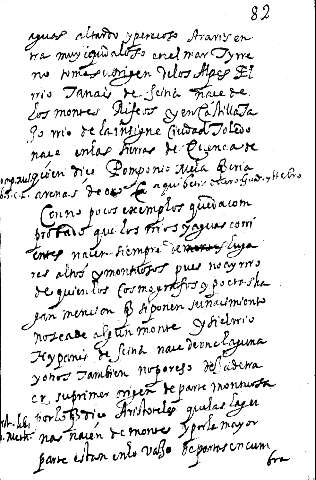 82
aguas al tardo y perezoso Araris en
tra muy caudaloso en el mar Tyrre
no toma su origen de los Alpes El
rio Tanais de scitia nace de
los montes Rifeos y en Castilla Ta
jo rio de la insigne Ciudad Toledo
nace en las sierras de Cuenca de
quien dice Pomponio Mela
arenas de oro
Con no pocos exemplos queda com
probado que los rios y aguas corri
entes nacen siempre de luga
res altos y montuosos pues no ay rio
de quien los Cosmografos y poetas ha
gan mencion q si ponen su nacimiento
no sea de algun monte y si el rio
Hypanis de scitia nace de una laguna
y otros tambien no por eso dexa de tra
er su primer origen de parte montuosa
por lo q dice Aristoteles que las lagu
nas nacen de montes y por la mayor
parte estan en lo de partes en cum
bra